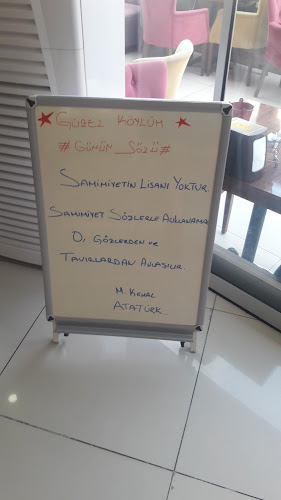 ★ GÜZEL KÖYLÜM ★
# GÜNÜN SÖZÜ #
SAMİMİYETİN LİSANI YOKTUR.
SAMİMİYET SÖZLERLE AÇIKLANAMAZ
O, GÖZLERDEN ve
TAVIRLARDAN ANLAŞILIR.
M. KEMAL
ATATÜRK